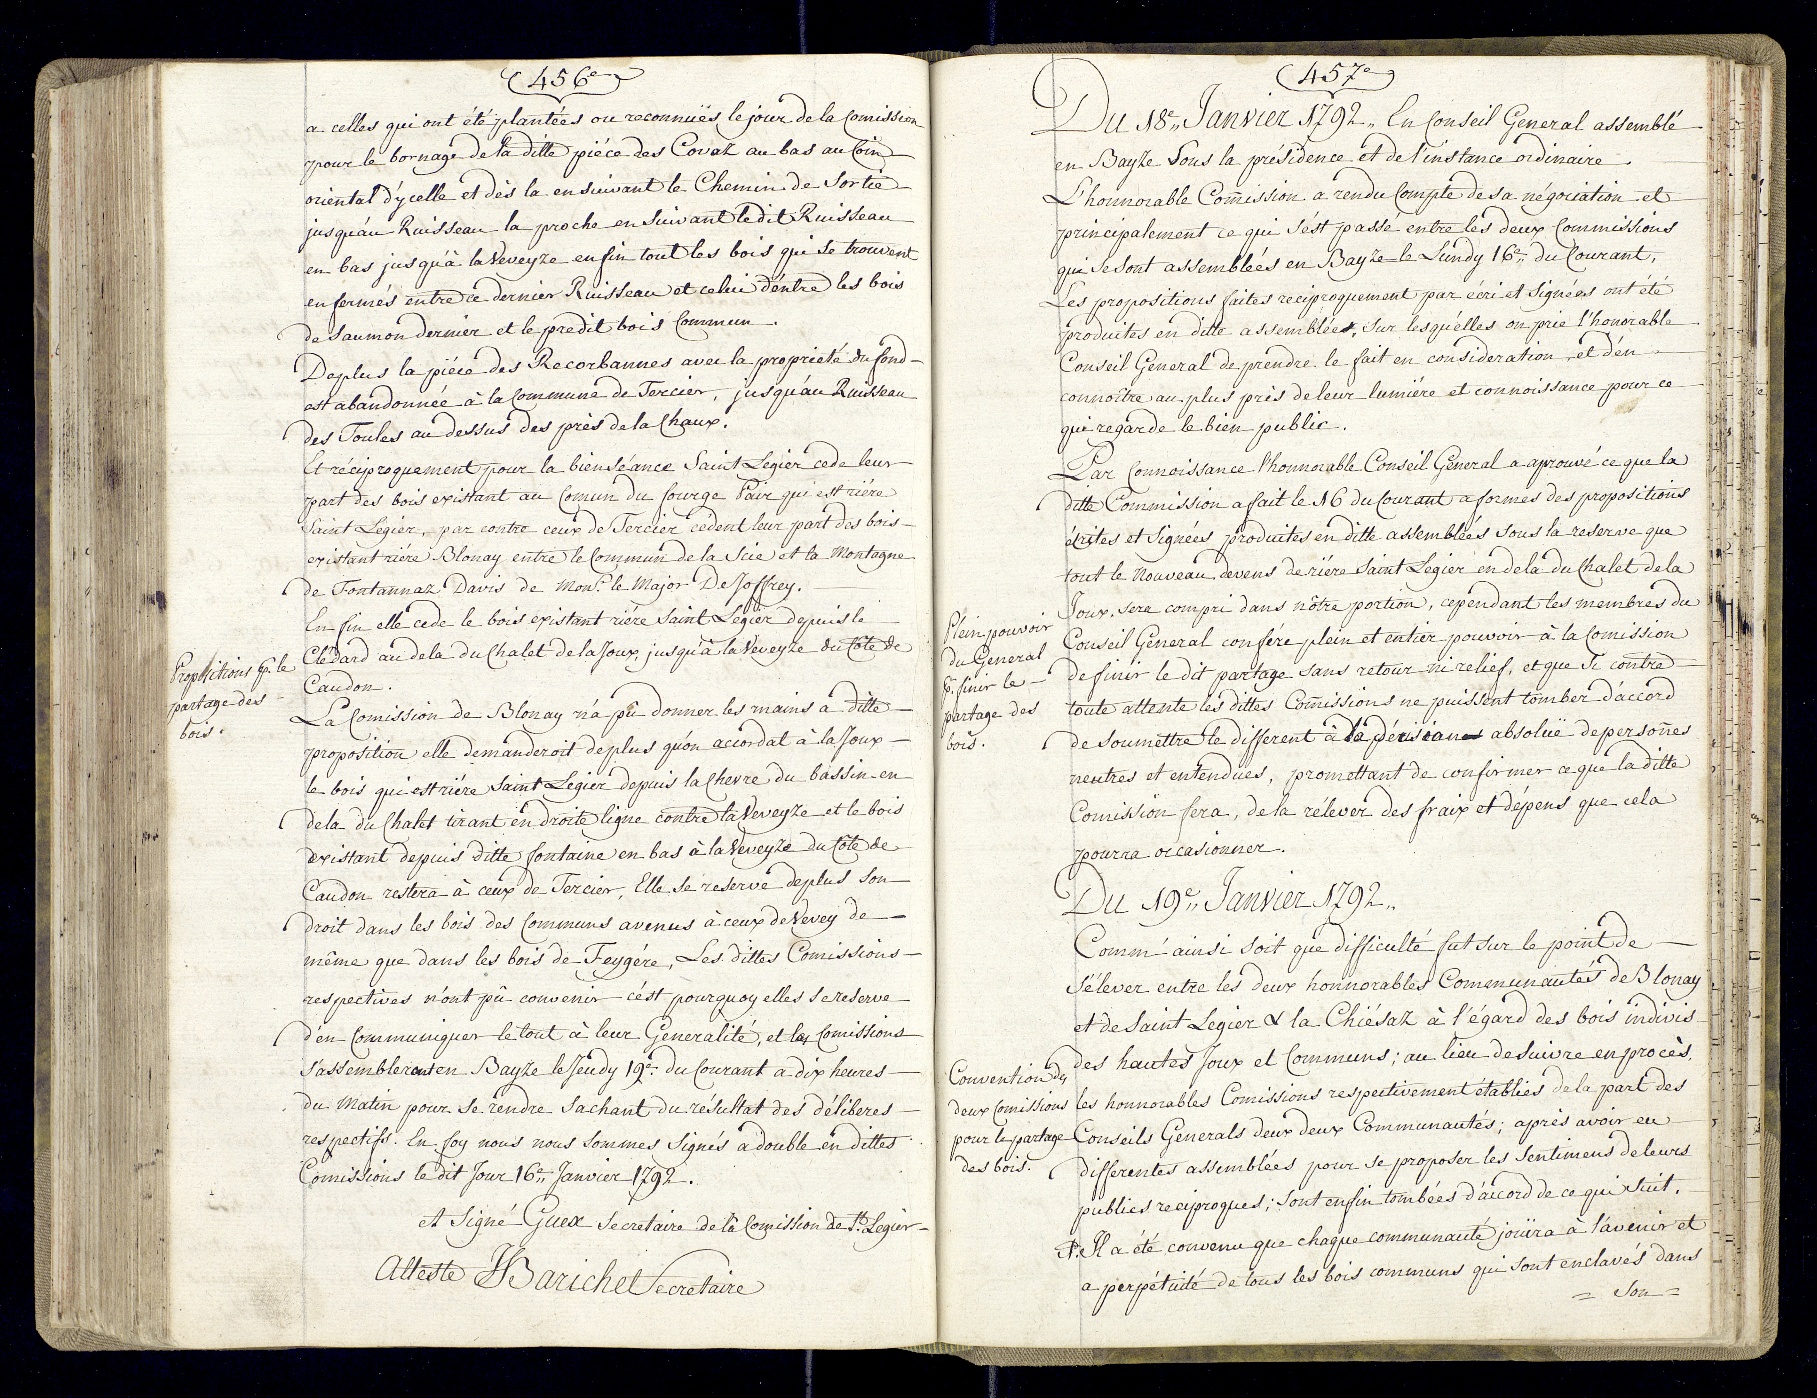 456e
a celles qui ont été plantées ou reconnuës le jour de la Comission
pour le bornage de la ditte piéce des Covaz au bas au Coin
oriental d'ycelle et dès la en suivant le Chemin de Sortie
jusqu'au Ruisseau la proche en suivant le dit Ruisseau
en bas jusqu'à la Veveyze enfin tout les bois qui se trouvent
enfermés entre ce dernier Ruisseau et celui d'entre les bois
de Saumon dernier et le predit bois Commun.
Deplus la piéce des Recorbannes avec la proprieté du fond
est abandonnée à la Commune de Tercier, jusqu'au Ruisseau
des Toules au dessus des prés de la Chaux.
Et réciproquement pour la bienséance Saint Legier cede leur
part des bois existant au Comun du Courge Pair qui est riére
Saint Legier, par contre ceux de Tercier cedent leur part des bois
existant riére Blonay entre le Commun de la Scie et la Montagne
de Fontannaz Davis de Monsr. le Major DeJoffrey.
En fin elle cede le bois existant riére Saint Legier depuis le
Clédard au dela du Chalet de la Joux, jusqu'à la Veveyze du Côté de
Caudon.
Propositions pr. le
partage des
bois.
La Comission de Blonay n'a pû donner les mains à ditte
proposition elle demanderoit deplus qu'on accordat à la Joux
le bois qui est riére Saint Legier depuis la Chevre du bassin en
dela du Chalet tirant en droite ligne contre la Veveyze et le bois
existant depuis ditte fontaine en bas à la Veveyze du Côté de
Caudon restera à ceux de Tercier, Elle se reserve deplus son
droit dans les bois des Communs avenus à ceux de Vevey de
même que dans les bois de Feygére, Les dittes Comissions
respectives n'ont pû convenir c'est pourquoy elles se reserve
d'en Communiquer le tout à leur Generalité, et les Comissions
s'assembleront en Bayze le Jeudy 19e. du Courant a dix heures
du Matin pour se rendre sachant du résultat des déliberes
respectifs. En foy nous nous sommes Signés a double en dittes
Comissions le dit Jour 16e. Janvier 1792.
et Signé Guex Secretaire de la Comission de St. Legier
Atteste JJBarichet Secretaire
457e
Du 18e,, Janvier 1792,, En Conseil General assemblé
en Bayze Sous la présidence et de l'instance ordinaire.
L'honnorable Comission a rendu Compte de sa négociation et
principalement ce qui s'est passé entre les deux Commissions
qui se sont assemblées en Bayze le Lundy 16e,, du Courant,
Les propositions faites reciproquement par écri et Signées ont été
produites en ditte assemblée, sur lesquélles on prie l'honorable
Conseil General de prendre le fait en consideration et d'en
connoître au plus près de leur lumiére et connoissance pour ce
qui regarde le bien public.
Par Connoissance l'honnorable Conseil General a aprouvé ce que la
ditte Commission a fait le 16 du Courant a formes des propositions
écrites et Signées produites en ditte assemblées sous la reserve que
tout le Nouveau devens de riére Saint Legier en dela du Chalet de la
Joux, sera compri dans nôtre portion, cependant les membres du
Plein pouvoir
du General
pr. finir le
partage des
bois.
Conseil General confére plein et entier pouvoir à la Comission
de finir le dit partage sans retour ni relief, et que Si contre
toute attente les dittes Comissions ne puissent tomber d'accord
de soumettre le different à la décision absoluë de persones
neutres et entendues, promettant de confirmer ce que la ditte
Comission fera, de la rélever des fraix et dépens que cela
pourra occasionner.
Du 19e,, Janvier 1792,,
Comm' ainsi soit que difficulté fut sur le point de
s'élever entre les deux honnorables Communautés de Blonay
et de Saint Legier & la Chiésaz à l'égard des bois indivis
des hautes Joux et Communs; au lieu de suivre en procès,
Convention des
deux Comissions
pour le partage
des bois.
les honnorables Comissions respectivement établies de la part des
Conseils Generals deux deux Communautés; après avoir eu
differentes assemblées pour se proposer les sentimens de leurs
publics reciproques; sont enfin tombées d'accord de ce qui suit.
1°. Il a été convenu que chaque communauté jouïra à l'avenir et
a perpétuité de tous les bois communs qui sont enclavés dans
= Son =